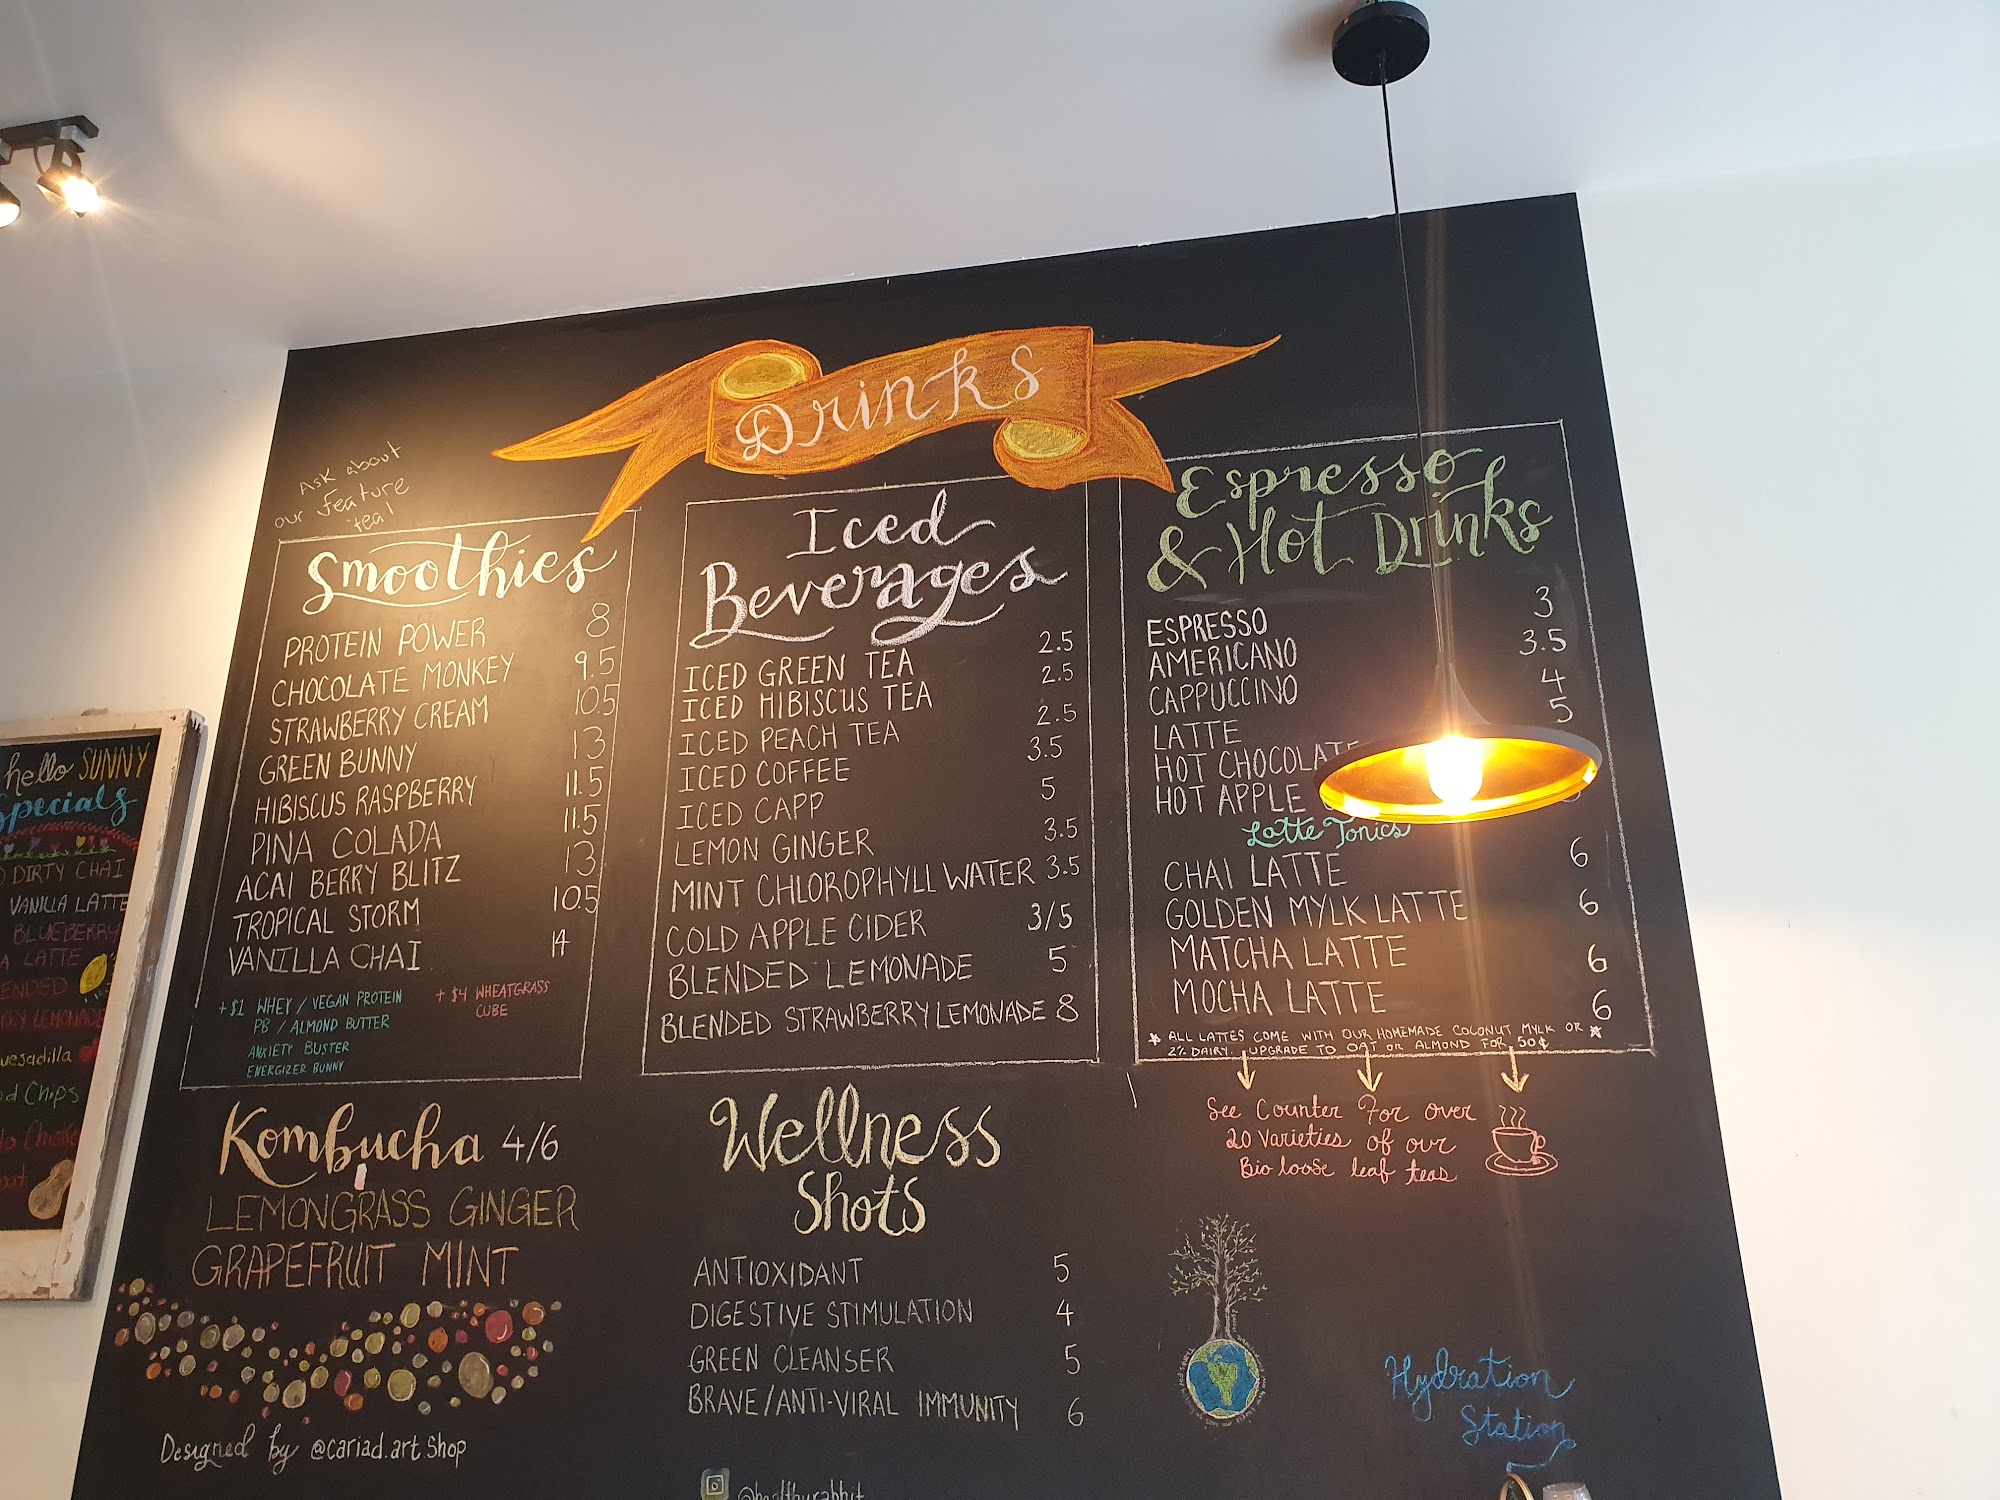 Drinks
Ask about
our feature
tea!
Smoothies
PROTEIN POWER 8
CHOCOLATE MONKEY 9.5
STRAWBERRY CREAM 10.5
GREEN BUNNY 13
HIBISCUS RASPBERRY 11.5
PINA COLADA 11.5
ACAI BERRY BLITZ 13
TROPICAL STORM 10.5
VANILLA CHAI 14
+ $1 WHEY / VEGAN PROTEIN
PB / ALMOND BUTTER
ANXIETY BUSTER
ENERGIZER BUNNY
+ $4 WHEATGRASS
CUBE
Iced
Beverages
ICED GREEN TEA 2.5
ICED HIBISCUS TEA 2.5
ICED PEACH TEA 2.5
ICED COFFEE 3.5
ICED CAPP 5
LEMON GINGER 3.5
MINT CHLOROPHYLL WATER 3.5
COLD APPLE CIDER 3/5
BLENDED LEMONADE 5
BLENDED STRAWBERRY LEMONADE 8
Espresso
& Hot Drinks
ESPRESSO 3
AMERICANO 3.5
CAPPUCCINO 4
LATTE 5
HOT CHOCOLATE
HOT APPLE
Latte Tonics
CHAI LATTE 6
GOLDEN MYLK LATTE 6
MATCHA LATTE 6
MOCHA LATTE 6
* ALL LATTES COME WITH OUR HOMEMADE COCONUT MYLK OR *
2% DAIRY. UPGRADE TO OAT OR ALMOND FOR .50¢
See Counter For over
20 varieties of our
Bio loose leaf teas
Kombucha 4/6
LEMONGRASS GINGER
GRAPEFRUIT MINT
Designed by @cariad.art.shop
Wellness
Shots
ANTIOXIDANT 5
DIGESTIVE STIMULATION 4
GREEN CLEANSER 5
BRAVE/ANTI-VIRAL IMMUNITY 6
@healthyrabbit
Hydration
Station
hello SUNNY
Specials
DIRTY CHAI
VANILLA LATTE
BLUEBERRY
LATTE
LEMONADE
Chips